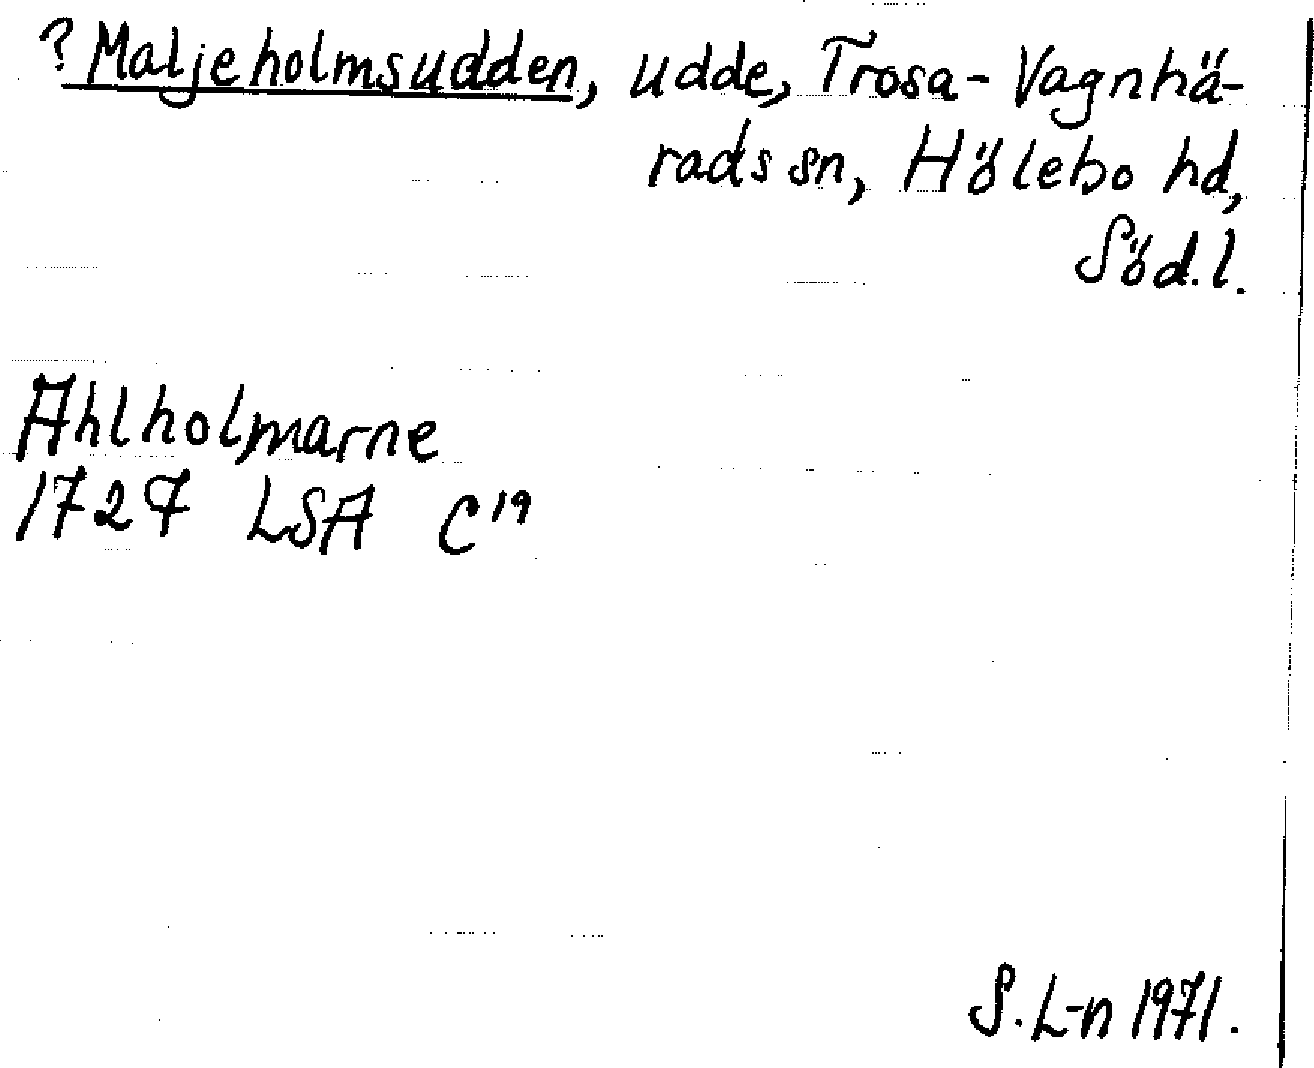 ? Maljeholmsudden, udde, Trosa-Vagnhä-
rads sn, Hölebo hd,
Söd.l.
Ahlholmarne
1727 LSA C19
S. L-n 1971.